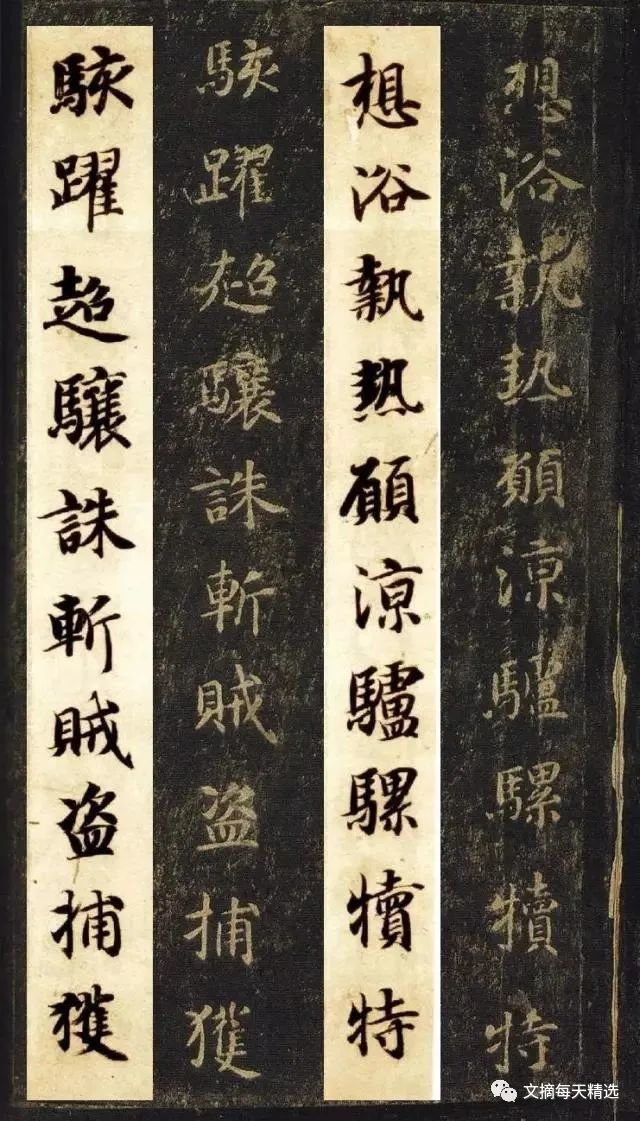 想浴執熱願涼驢騾犢特
想浴執熱願涼驢騾犢特
駭躍超驤誅斬賊盗捕獲
駭躍超驤誅斬賊盗捕獲
文摘每天精选